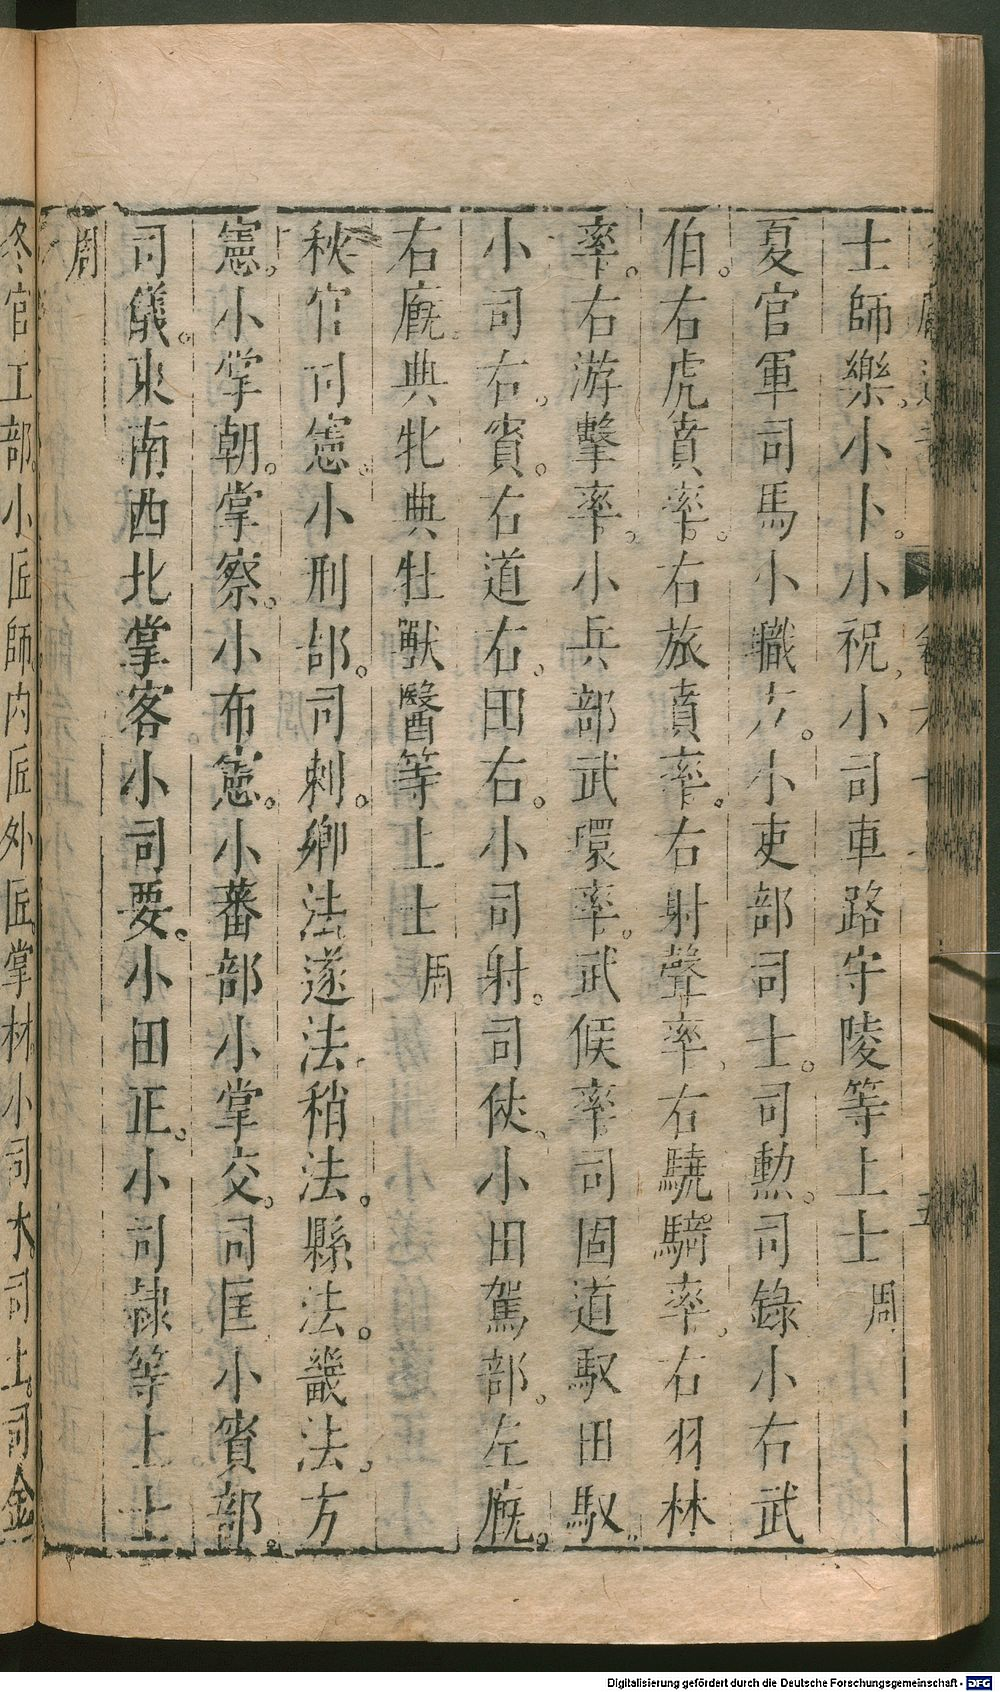 士師樂。小卜。小祝。小司車路守陵等上士周
夏官軍司馬小職方。小吏部司士。司勲。司錄小右武
伯。右虎賁率。右旅賁率。右射聲率。右驍騎率。右羽林
率。右游擊率。小兵部武環率。武候率司固道馭田馭。
小司右。賓。右道右。田右。小司射。司仗。小田駕部。左廐。
右廐典牝典牡獸醫等上士周
秋官司憲。小刑部。司刺。鄉法遂法。稍法。縣法。畿法。方
憲。小掌朝。掌察。小布憲。小蕃部小掌交。司匡小賓部。
司儀。東南西北掌客小司要。小田正。小司隷等上士
周
冬官工部。小匠師内匠外匠。掌材。小司木。司土。司金